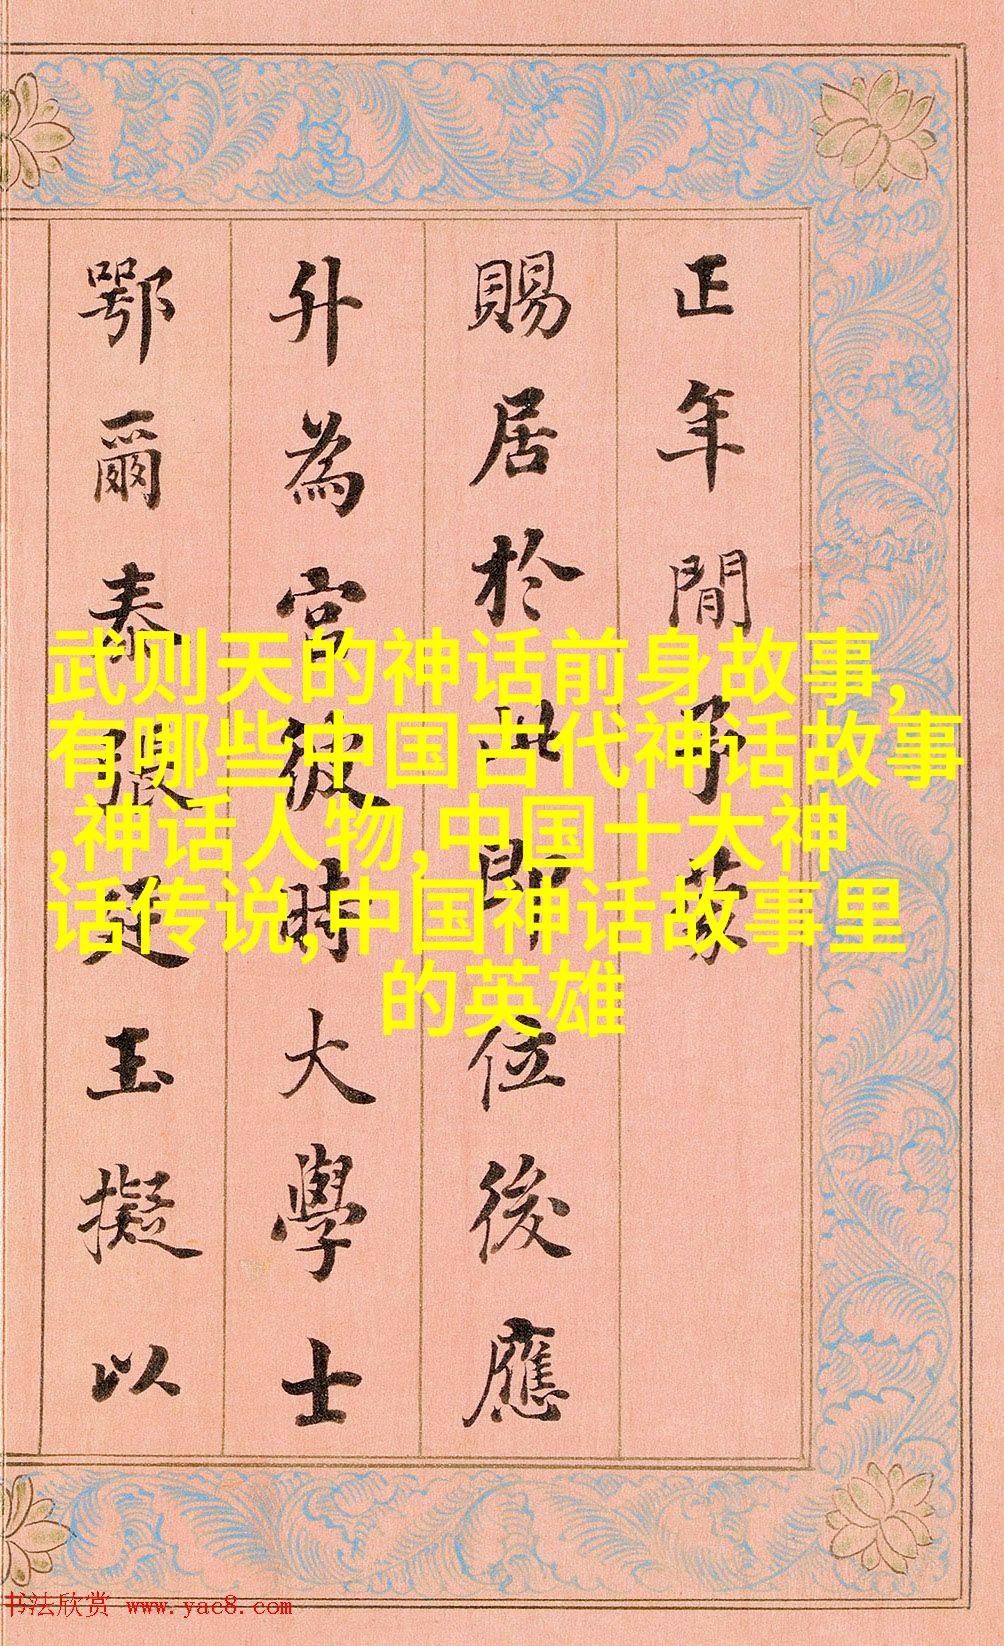 正年間予蒙
賜居於此即位後應
升為宮彼時大學士
鄂爾泰張廷玉擬以
武则天的神话前身故事,
有哪些中国古代神话故事
,神话人物,中国十大神
话传说,中国神话故事里
的英雄
书法欣赏 www.yac8.com